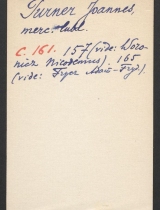 Turner Joannes,
merc. lubl.
C. 161. 157 (vide: Woro-
nicz Nicodemus), 165
(vide: Fryer Adois-Fryd).